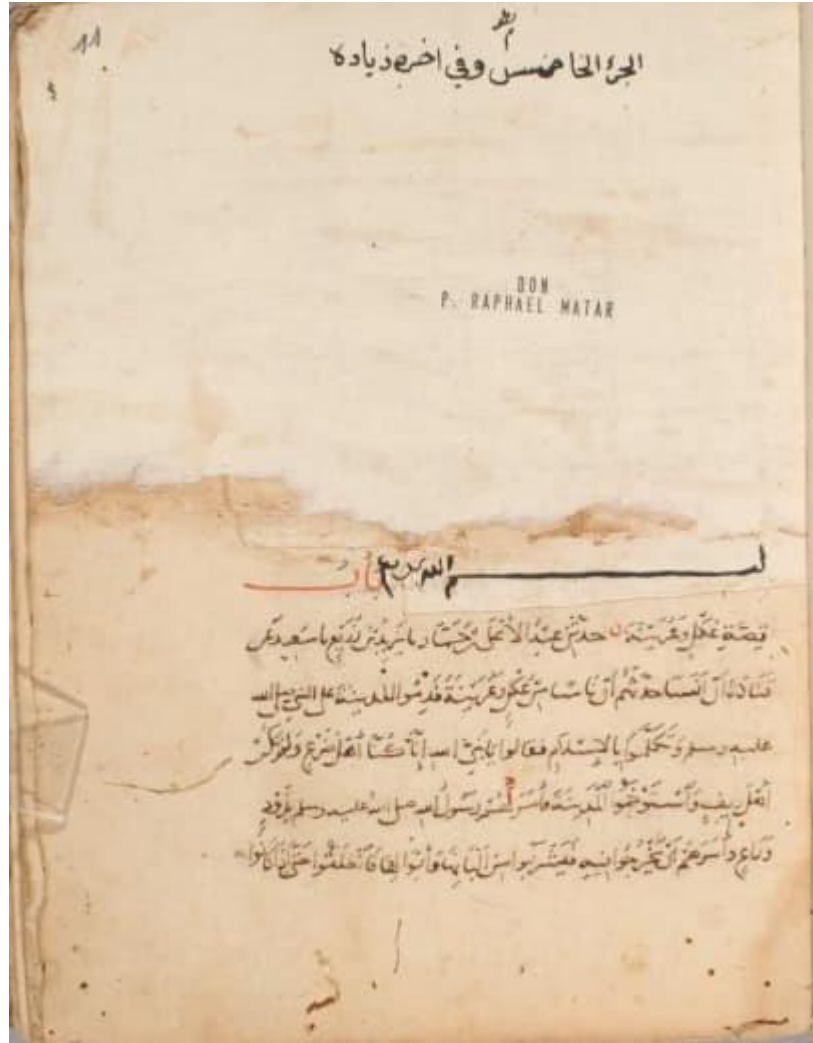 11
الجزء الخامس وفي اخره زيادة
DON
P. RAPHAEL MATAR
بسم الله الرحمن الرحيم باب
قِصَّةِ عُكْلٍ وَعُرَيْنَةَ حدثني عَبْدُ الأَعْلَى بْنُ حَمَّادٍ نا يزيدُ بْنُ زُرَيْعٍ نا سَعِيدٌ عَنْ
قَتَادَةَ أَنَّ أَنَسًا حَدَّثَهُمْ أَنَّ نَاسًا مِنْ عُكْلٍ وَعُرَيْنَةَ قَدِمُوا الْمَدِينَةَ عَلَى النَّبِيِّ صلى الله
عليه وسلم وَتَكَلَّمُوا بِالإِسْلاَمِ فقالوا يَا نَبِيَّ اللهِ إِنَّا كُنَّا أَهْلَ ضَرْعٍ وَلَمْ نَكُنْ
أَهْلَ رِيفٍ وَاسْتَوْخَمُوا الْمَدِينَةَ فَأَمَرَ لَهُمْ رَسُولُ اللهِ صلى الله عليه وسلم بِذَوْدٍ
وَرَاعٍ وَأَمَرَهُمْ أَنْ يَخْرُجُوا فِيهِ فَيَشْرَبُوا مِنْ أَلْبَانِهَا وَأَبْوَالِهَا فَانْطَلَقُوا حَتَّى إِذَا كَانُوا